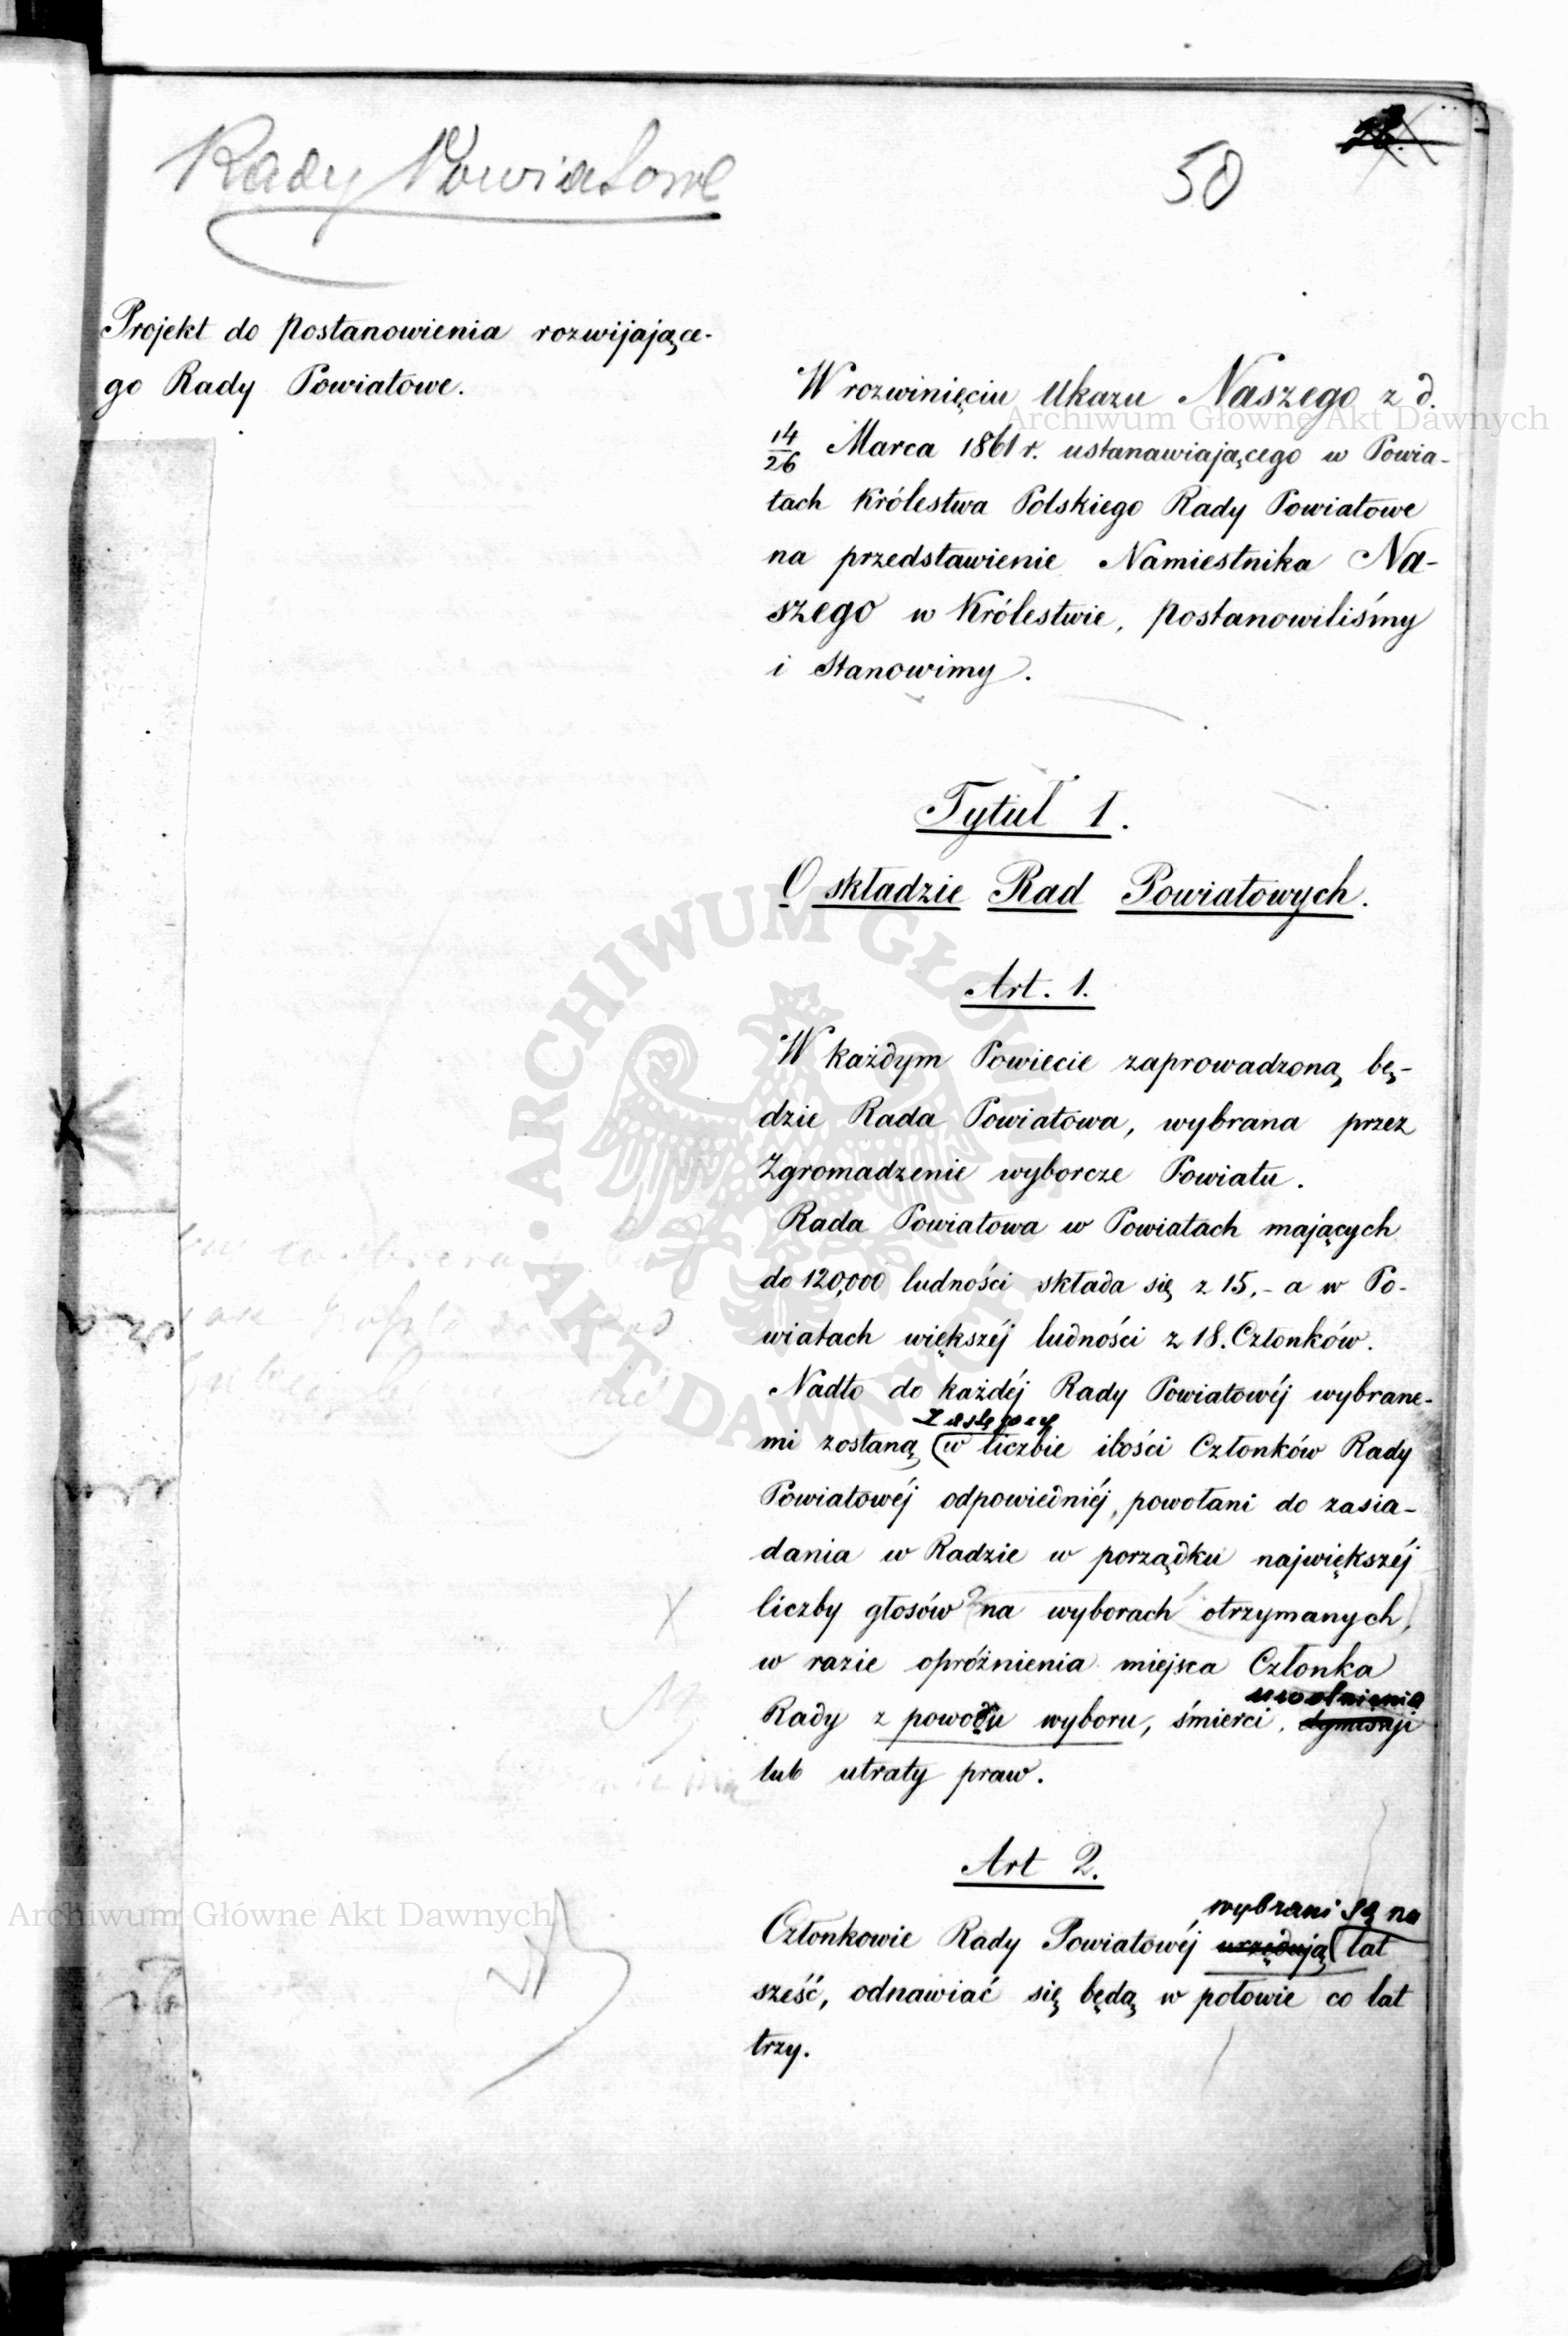 Rady Powiatowe
50
Projekt do postanowienia rozwijające-
go Rady Powiatowe.
W rozwinięciu Ukazu Naszego z d.
14/26 Marca 1861 r. ustanawiającego w Powia-
tach Królestwa Polskiego Rady Powiatowe
na przedstawienie Namiestnika Na-
szego w Królestwie, postanowiliśmy
i Stanowimy.
Tytuł 1.
O składzie Rad Powiatowych.
Art. 1.
W każdym Powiecie zaprowadzoną bę-
dzie Rada Powiatowa, wybrana przez
Zgromadzenie wyborcze Powiatu.
Rada Powiatowa w Powiatach mających
do 120,000 ludności składa się z 15,- a w Po-
wiatach większéj ludności z 18. Członków.
Nadto do każdéj Rady Powiatowéj wybrane-
Zastępcy
mi zostaną w liczbie ilości Członków Rady
Powiatowéj odpowiedniéj, powołani do zasia-
dania w Radzie w porządku największéj
liczby głosów na wyborach otrzymanych,
w razie opróżnienia miejsca Członka
uwolnienia
Rady z powodu wyboru, śmierci, dymissji
lub utraty praw.
Art 2.
wybrani są na
Członkowie Rady Powiatowéj urzędują lat
sześć, odnawiać się będą w połowie co lat
trzy.
Archiwum Główne Akt Dawnych
Archiwum Główne Akt Dawnych
ARCHIWUM GŁÓWNE AKT DAWNYCH